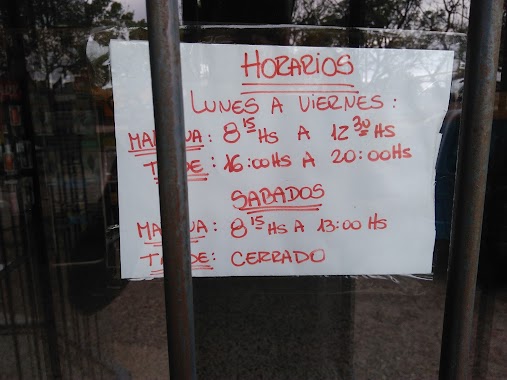 HORARIOS
LUNES A VIERNES:
MAÑANA: 8 15 HS A 12 30 HS
TARDE: 16:00HS A 20:00HS
SABADOS
MAÑANA: 8 15 HS A 13:00 HS
TARDE: CERRADO